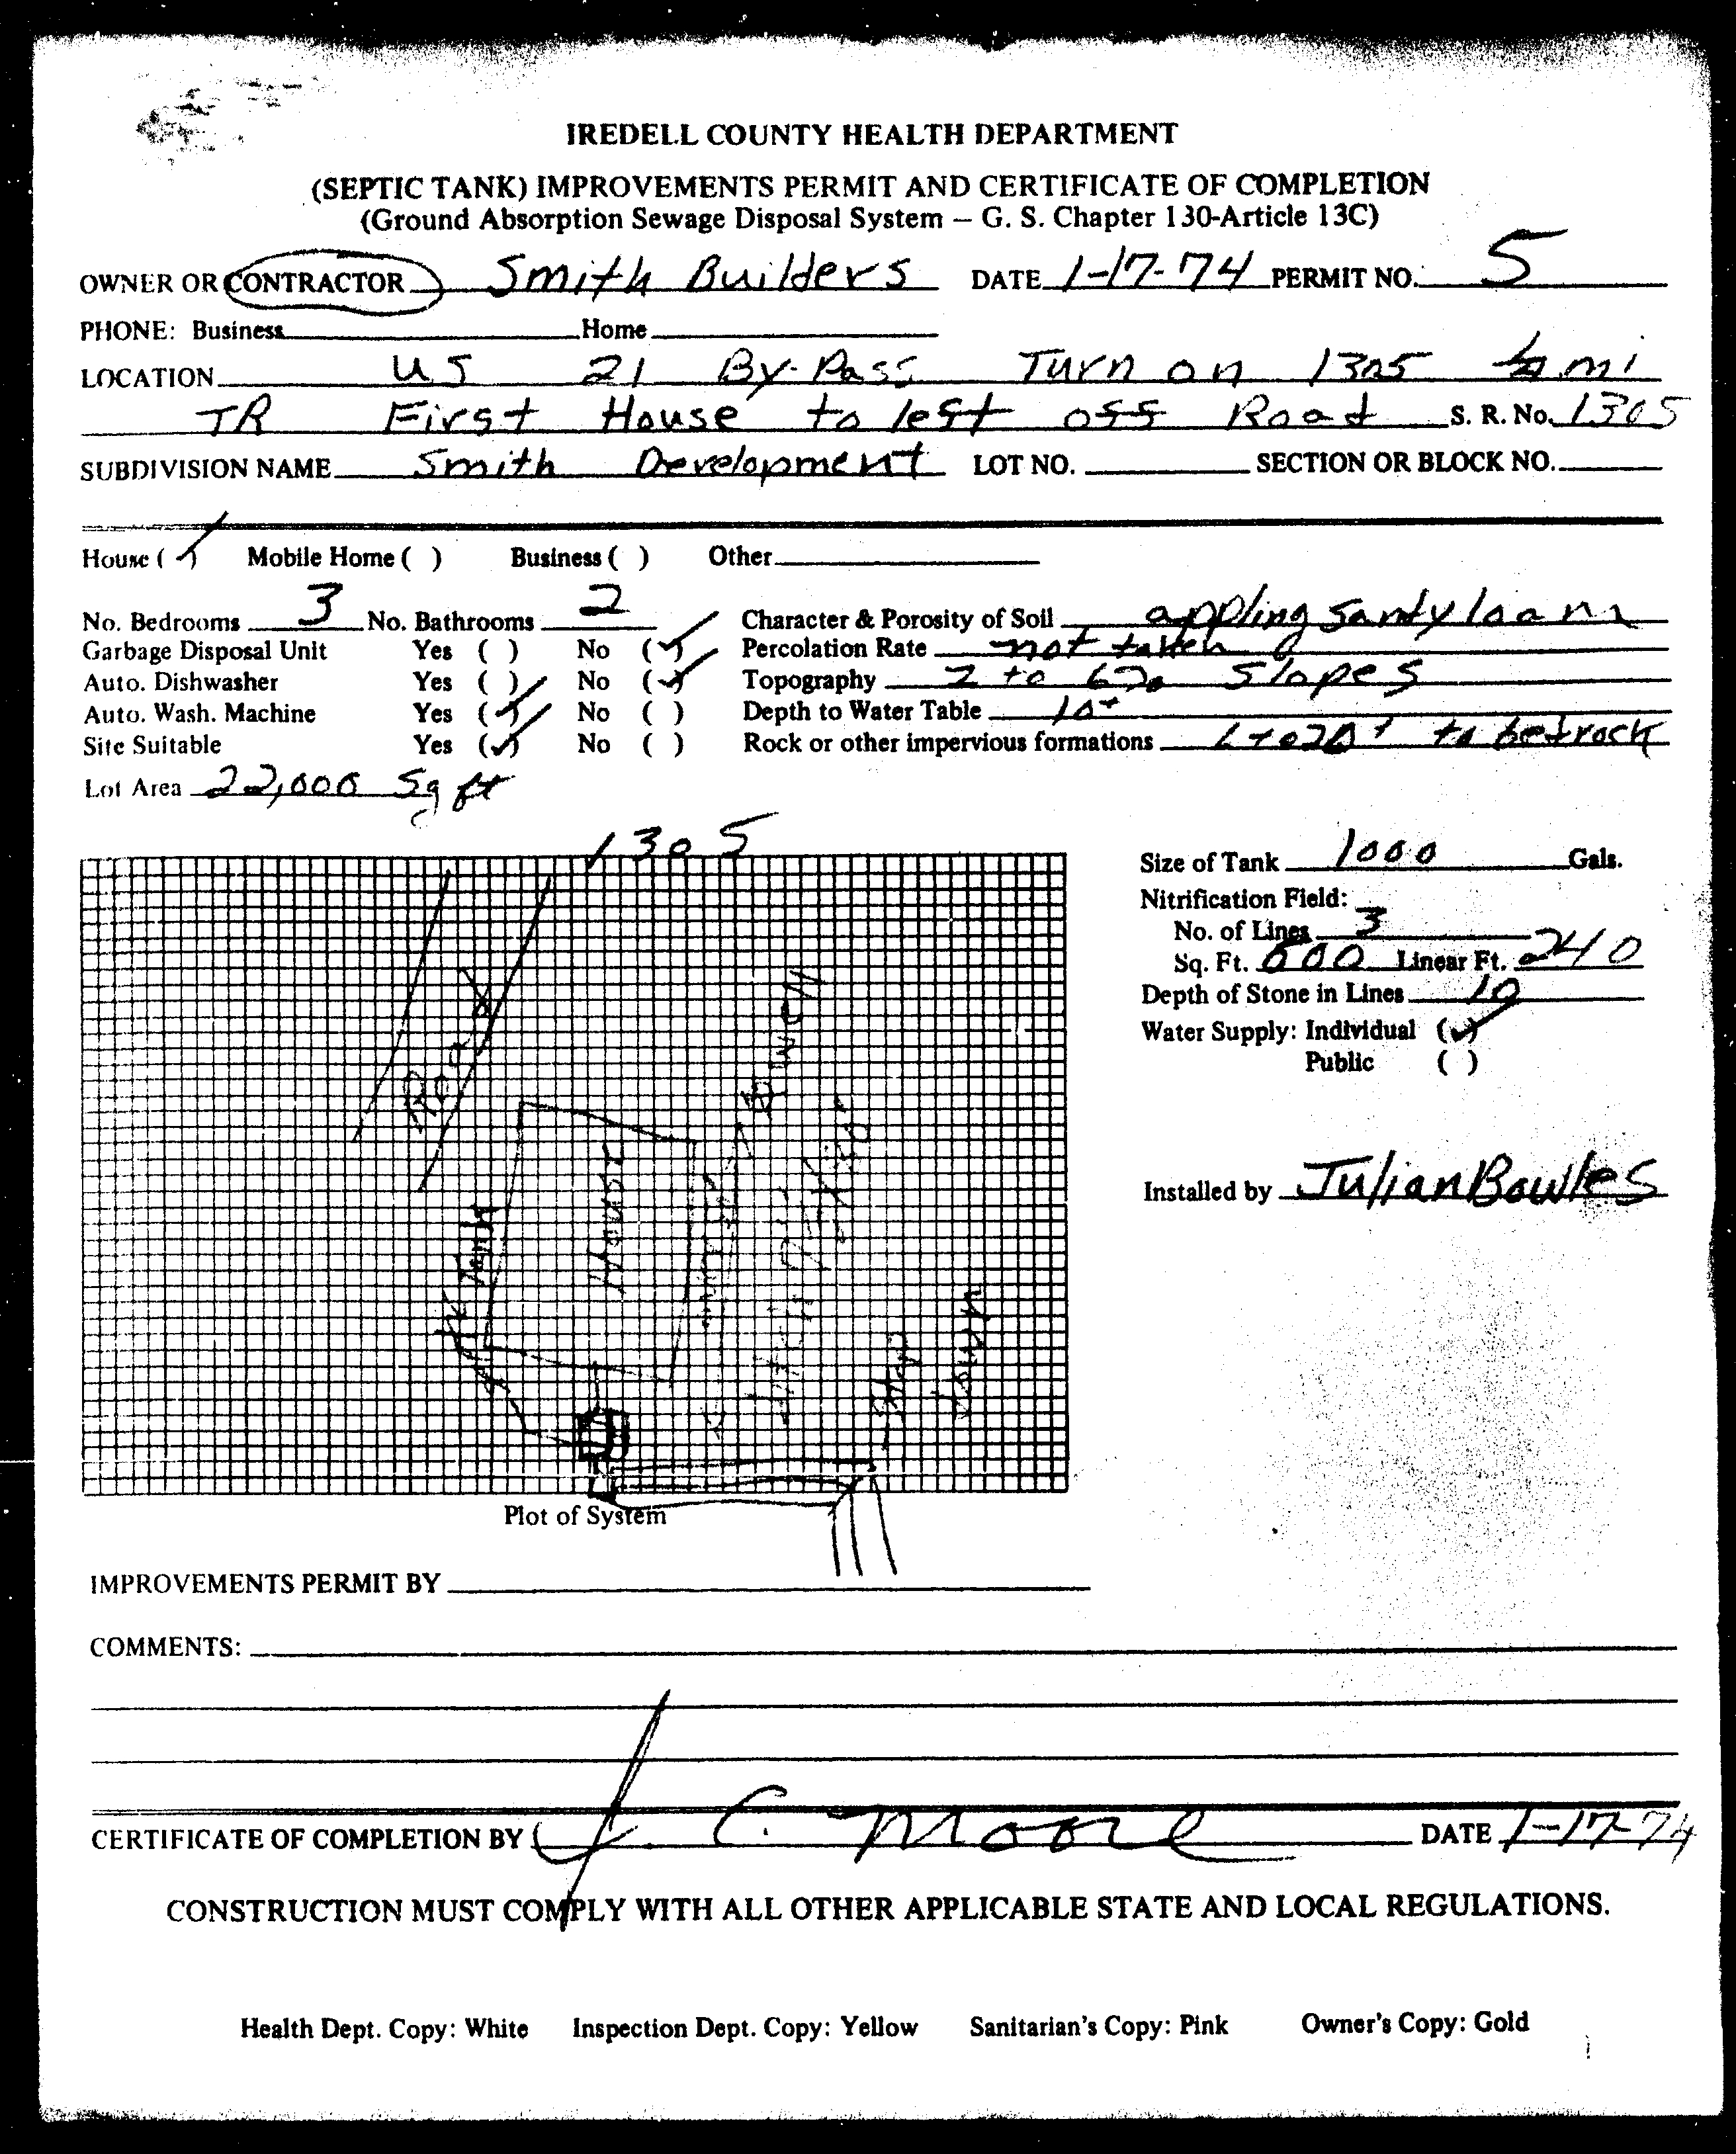 IREDELL COUNTY HEALTH DEPARTMENT
(SEPTIC TANK) IMPROVEMENTS PERMIT AND CERTIFICATE OF COMPLETION
(Ground Absorption Sewage Disposal System – G. S. Chapter 130-Article 13C)
OWNER OR CONTRACTOR Smith Builders DATE 1-17-74 PERMIT NO. 5
PHONE: Business Home
LOCATION US 21 By-Pass Turn on 1305 mi
TR First House to left off Road S. R. No. 1305
SUBDIVISION NAME Smith Development LOT NO. SECTION OR BLOCK NO.
House (✓) Mobile Home ( ) Business ( ) Other
No. Bedrooms 3 No. Bathrooms 2 Character & Porosity of Soil appling sandy loam
Garbage Disposal Unit Yes ( ) No (✓) Percolation Rate not taken
Auto. Dishwasher Yes ( ) No (✓) Topography 2 to 6% Slopes
Auto. Wash. Machine Yes (✓) No ( ) Depth to Water Table 10+
Site Suitable Yes (✓) No ( ) Rock or other impervious formations to bedrock
Lot Area 22,000 Sq ft
1305
Size of Tank 1000 Gals.
Nitrification Field:
No. of Lines 3
Sq. Ft. 600 Linear Ft. 240
Depth of Stone in Lines 10
Water Supply: Individual (✓)
Public ( )
Road
Well
House
Tank
Installed by Julian Bowles
Plot of System
IMPROVEMENTS PERMIT BY
COMMENTS:
CERTIFICATE OF COMPLETION BY J. C. Moore DATE 1-17-74
CONSTRUCTION MUST COMPLY WITH ALL OTHER APPLICABLE STATE AND LOCAL REGULATIONS.
Health Dept. Copy: White Inspection Dept. Copy: Yellow Sanitarian's Copy: Pink Owner's Copy: Gold